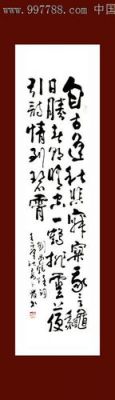 www.997788.com 中国
自古逢秋悲寂寥我言龝
日勝春朝晴空一鶴排雲上便
引詩情到碧霄